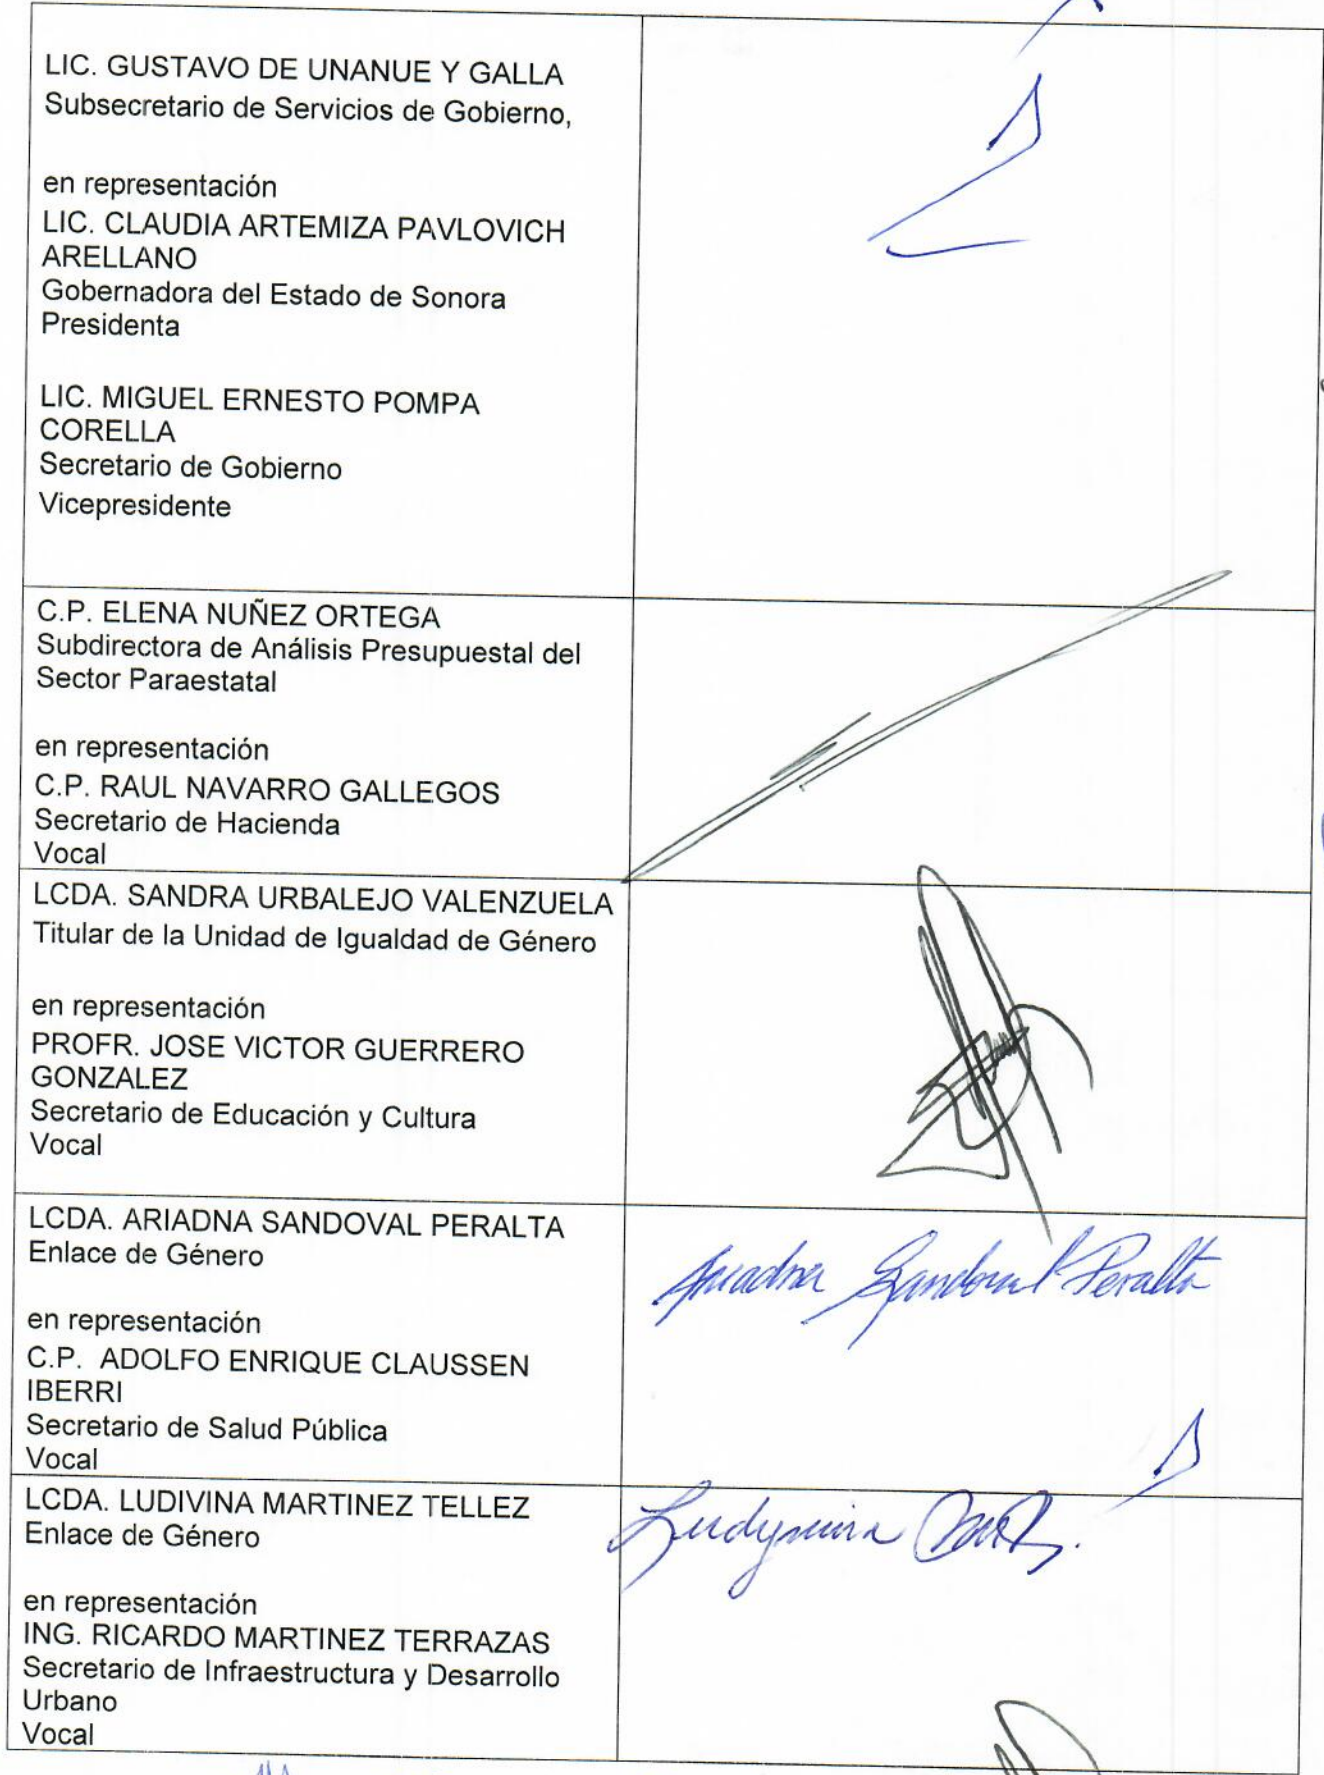 LIC. GUSTAVO DE UNANUE Y GALLA
Subsecretario de Servicios de Gobierno,
en representación
LIC. CLAUDIA ARTEMIZA PAVLOVICH
ARELLANO
Gobernadora del Estado de Sonora
Presidenta
LIC. MIGUEL ERNESTO POMPA
CORELLA
Secretario de Gobierno
Vicepresidente
C.P. ELENA NUÑEZ ORTEGA
Subdirectora de Análisis Presupuestal del
Sector Paraestatal
en representación
C.P. RAUL NAVARRO GALLEGOS
Secretario de Hacienda
Vocal
LCDA. SANDRA URBALEJO VALENZUELA
Titular de la Unidad de Igualdad de Género
en representación
PROFR. JOSE VICTOR GUERRERO
GONZALEZ
Secretario de Educación y Cultura
Vocal
LCDA. ARIADNA SANDOVAL PERALTA
Enlace de Género
Ariadna Sandoval Peralta
en representación
C.P. ADOLFO ENRIQUE CLAUSSEN
IBERRI
Secretario de Salud Pública
Vocal
LCDA. LUDIVINA MARTINEZ TELLEZ
Enlace de Género
en representación
ING. RICARDO MARTINEZ TERRAZAS
Secretario de Infraestructura y Desarrollo
Urbano
Vocal